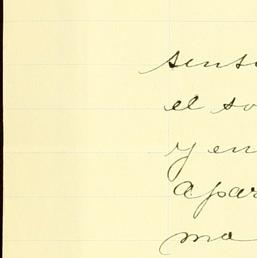 sents
el so
y en
apar
ma